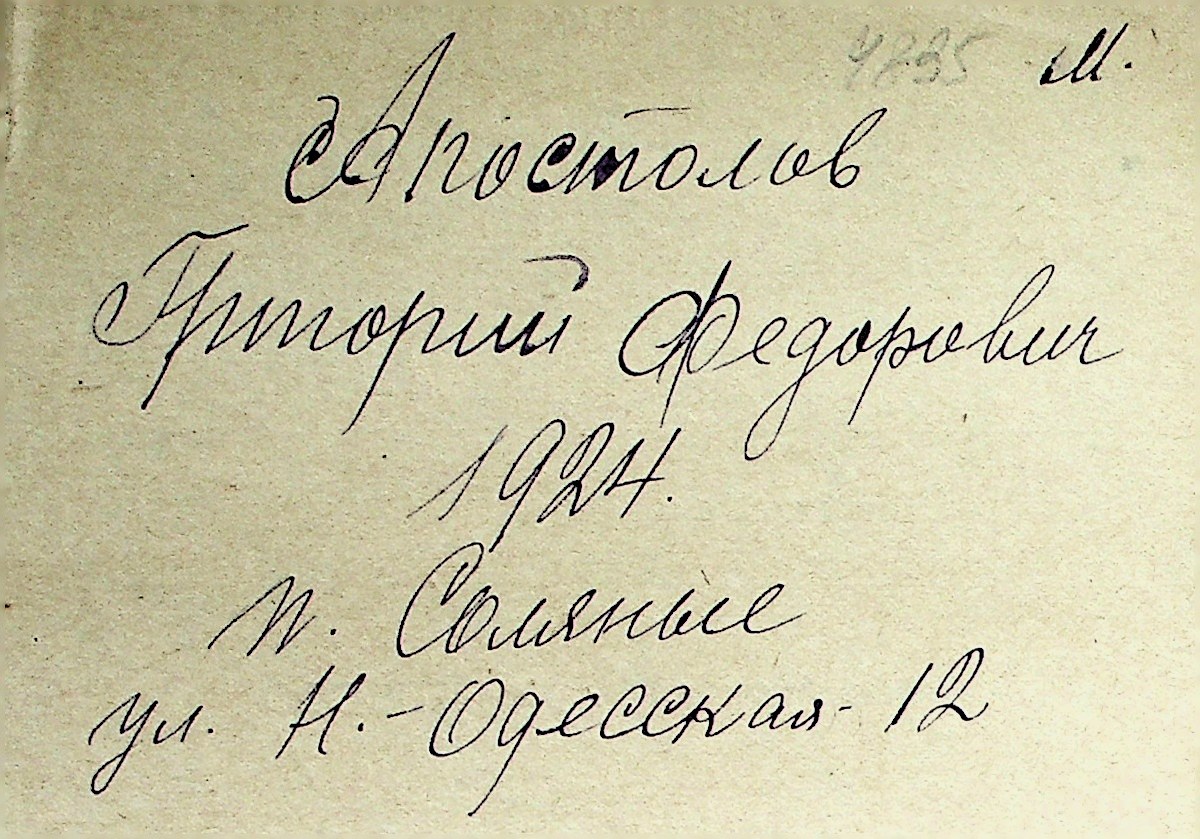 4835 М.
Апостолов
Григорий Федорович
1924.
п. Соляные
ул. Н.-Одесская-12